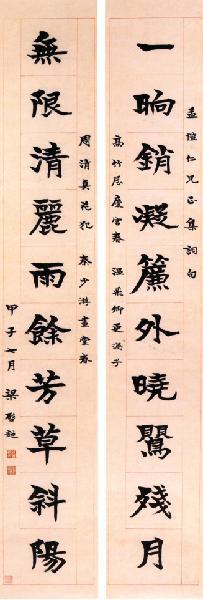 孟愷仁兄正集詞句
一晌銷凝簾外曉鸎殘月
高竹屋慶宮春 溫飛卿更漏子
周清真花犯 秦少游畫堂春
無限清麗雨餘芳草斜陽
甲子七月 梁啟超